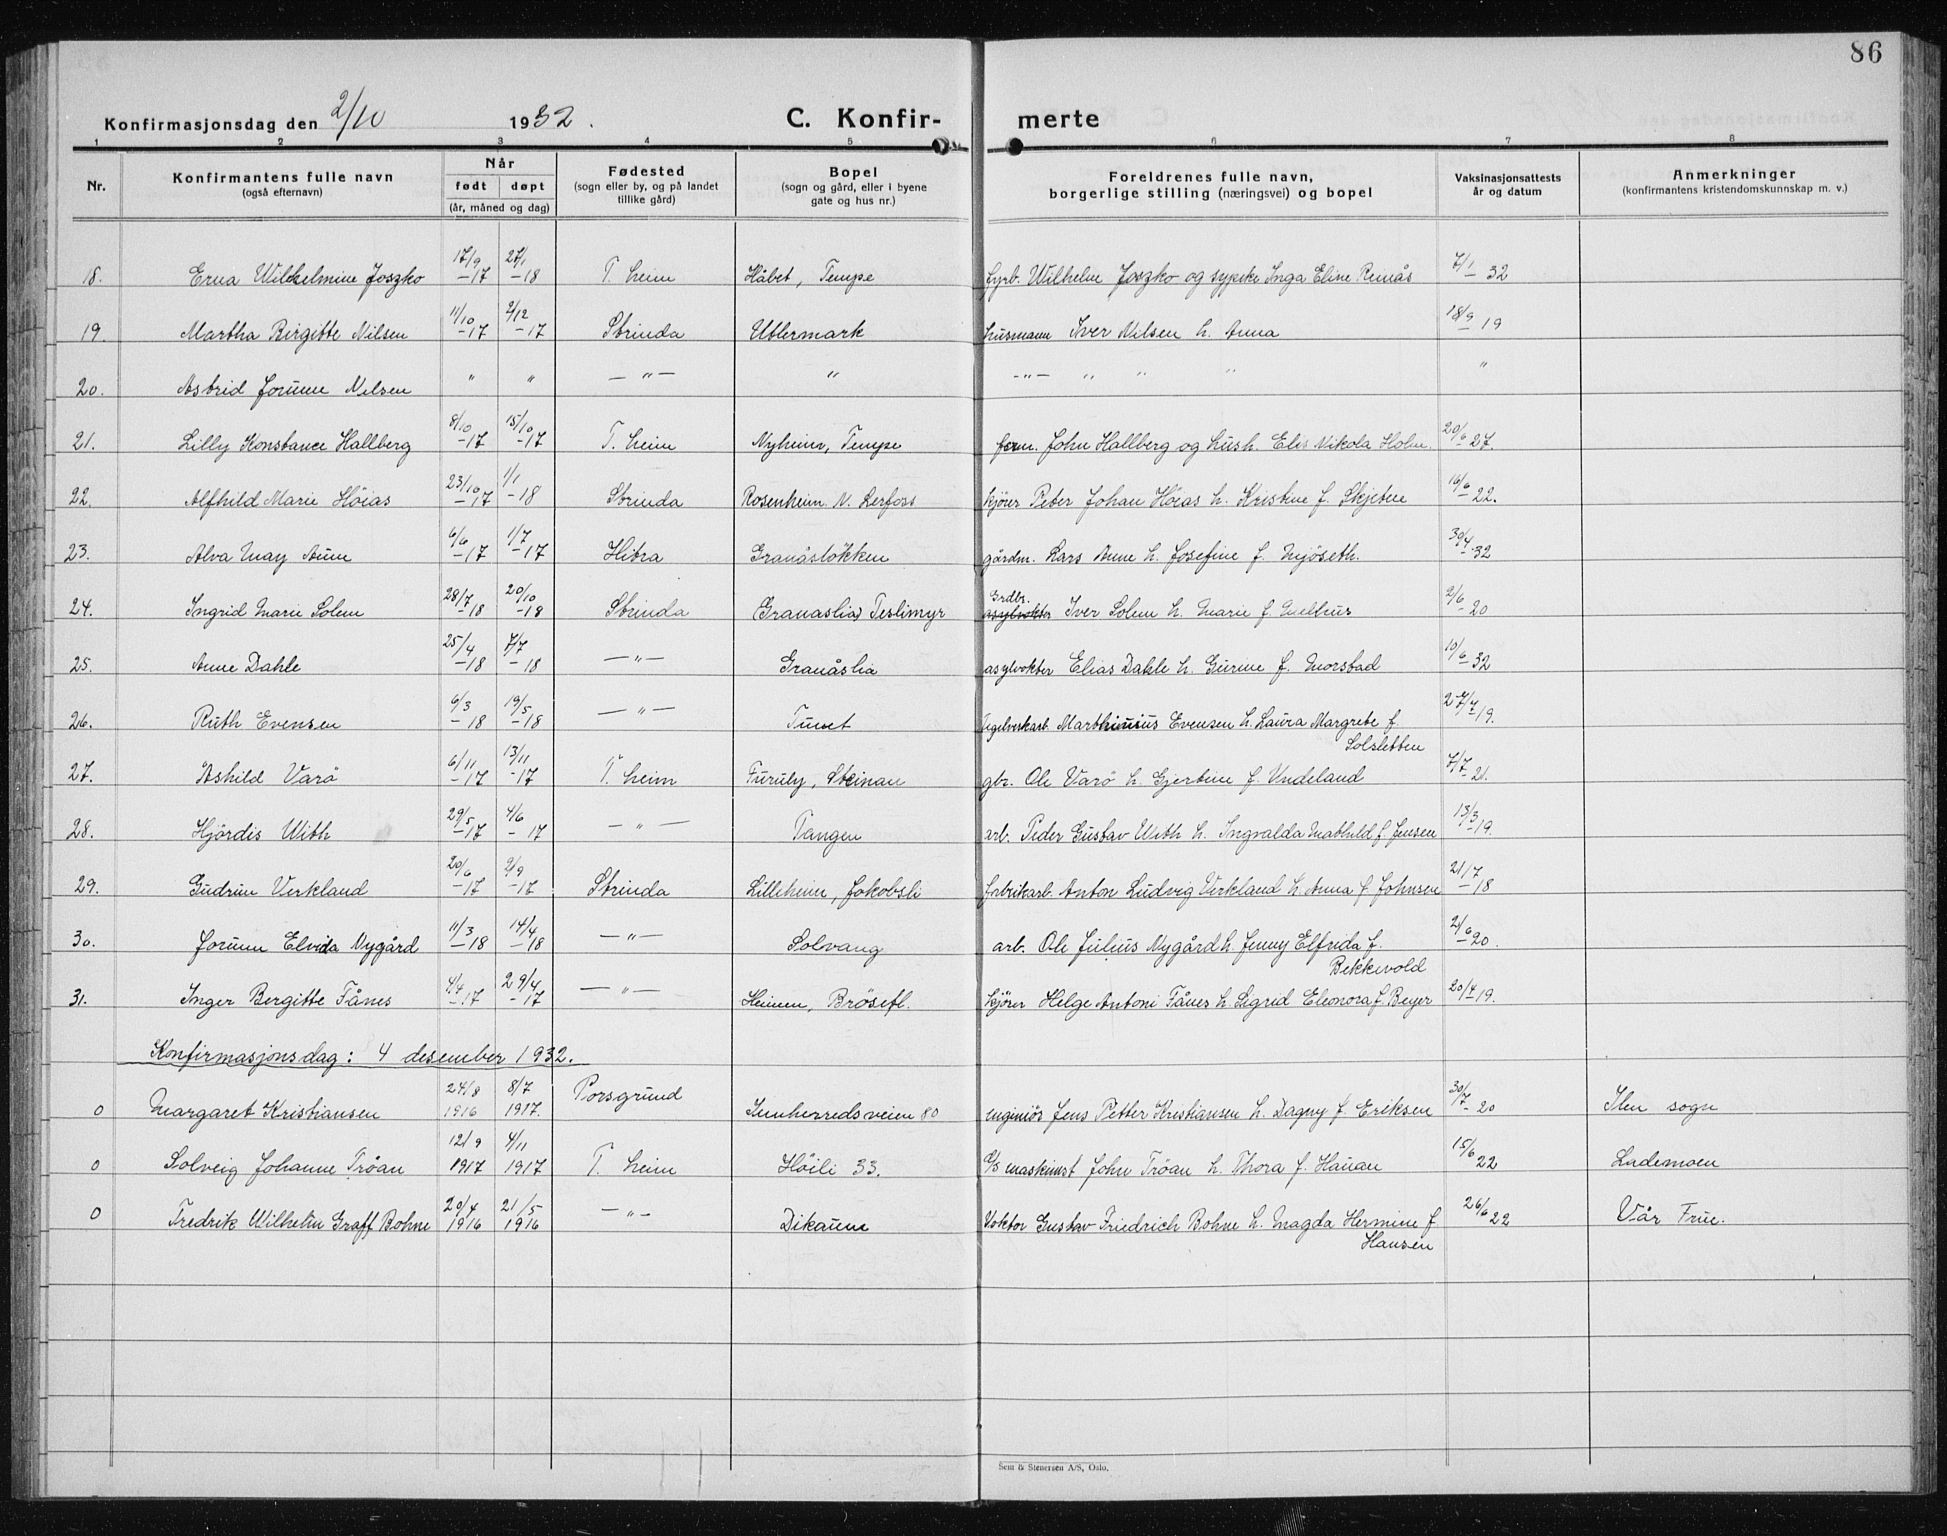 86
Konfirmasjonsdag den 2/10 1932. C. Konfir- merte
1 2 3 4 5 6 7 8
Nr. Konfirmantens fulle navn (også efternavn) Når født døpt (år, måned og dag) Fødested (sogn eller by, og på landet tillike gård) Bopel (sogn og gård, eller i byene gate og hus nr.) Foreldrenes fulle navn, borgerlige stilling (næringsvei) og bopel Vaksinasjonsattests år og datum Anmerkninger (konfirmantens kristendomskunnskap m. v.)
18. Erna Wilhelmine Joszko 17/9 -17 27/1 -18 T.heim Håbet, Tempe fyrb. Wilhelm Joszko og sypike Inga Eline Reinås 7/1 32
19. Martha Bergitte Nilsen 11/10 -17 2/12 -17 Strinda Utlermark husmann Iver Nilsen h. Anna 18/9 19
20. Astrid Jorunn Nilsen " " —"— " -"- " " " "
21. Lilly Konstance Hallberg 8/10 -17 15/10 -17 T.heim Nyheim, Tempe form. John Hallberg og hush. Elis Nikola Holm. 20/6 27.
22. Alfhild Marie Höias 23/10 -17 1/1 -18 Strinda Rosenheim N. Lerfoss kjører Peter Johan Höias h. Kristine f. Skjetne 16/6 22.
23. Alva May Aune 6/6 -17 1/7 -17 Hitra Granåsløkken gårdm. Lars Aune h. Josefine f. Mjöseth. 30/4 32
24. Ingrid Marie Solem 28/7 -18 20/10 -18 Strinda Granaslia Teslimyr Grdbr. asylvokter Iver Solem h. Marie f. Melhus 2/6 20
25. Anne Dahle 25/4 -18 7/7 -18 —"— Granåslia asylvokter Elias Dahle h. Gurine f. Morstad 10/6 32
26. Ruth Evensen 6/3 -18 19/5 -18 —"— Tunet Teglverkarb. Marthinius Evensen h. Laura Margrete f.
Solsletten 27/7 19.
27. Åshild Varö 6/11 -17 13/11 -17 T.heim Furuly, Steinan gbr. Ole Varö h. Gjertine f. Undeland 7/7 21.
28. Hjördis With 29/5 -17 4/6 -17 —"— Tangen arb. Peder Gustav With h. Ingvalda Mathild f. Jensen 13/3 19.
29. Gudrun Verkland 20/6 -17 2/9 -17 Strinda Lilleheim, Jakobsli fabrikarb. Anton Ludvig Verkland h. Anna f. Johnsen 21/7 18
30. Jorunn Elvida Nygård 11/3 -18 14/4 -18 —"— Solvang arb. Ole Julius Nygård h. Jenny Elfrida f.
Bekkevold 2/6 20.
31. Inger Bergitte Fånes 4/4 -17 29/4 -17 —"— Heimen, Brösetfl. kjører Helge Antoni Fånes h. Sigrid Eleonora f. Beyer 20/4 19.
Konfirmasjonsdag: 4 desember 1932.
0 Margaret Kristiansen 24/8 1916 8/7 1917. Porsgrund Innherredsveien 80 engeniör Jens Petter Kristiansen h. Dagny f. Eriksen 30/7 20 Ilen sogn
0 Solveig Johanne Tröan 12/9 1917 4/11 1917 T.heim Höili 33. maskinist John Tröan h. Thora f. Hauan 15/6 22 Lademoen
0 Fredrik Wilhelm Graff Bohne 20/4 1916 21/5 1916 —"— Dikaune Doktor Gustav Friedrich Bohne h. Magda Hermine f.
Hansen 26/6 22 Vår Frue.
Sem & Stenersen A/S, Oslo.